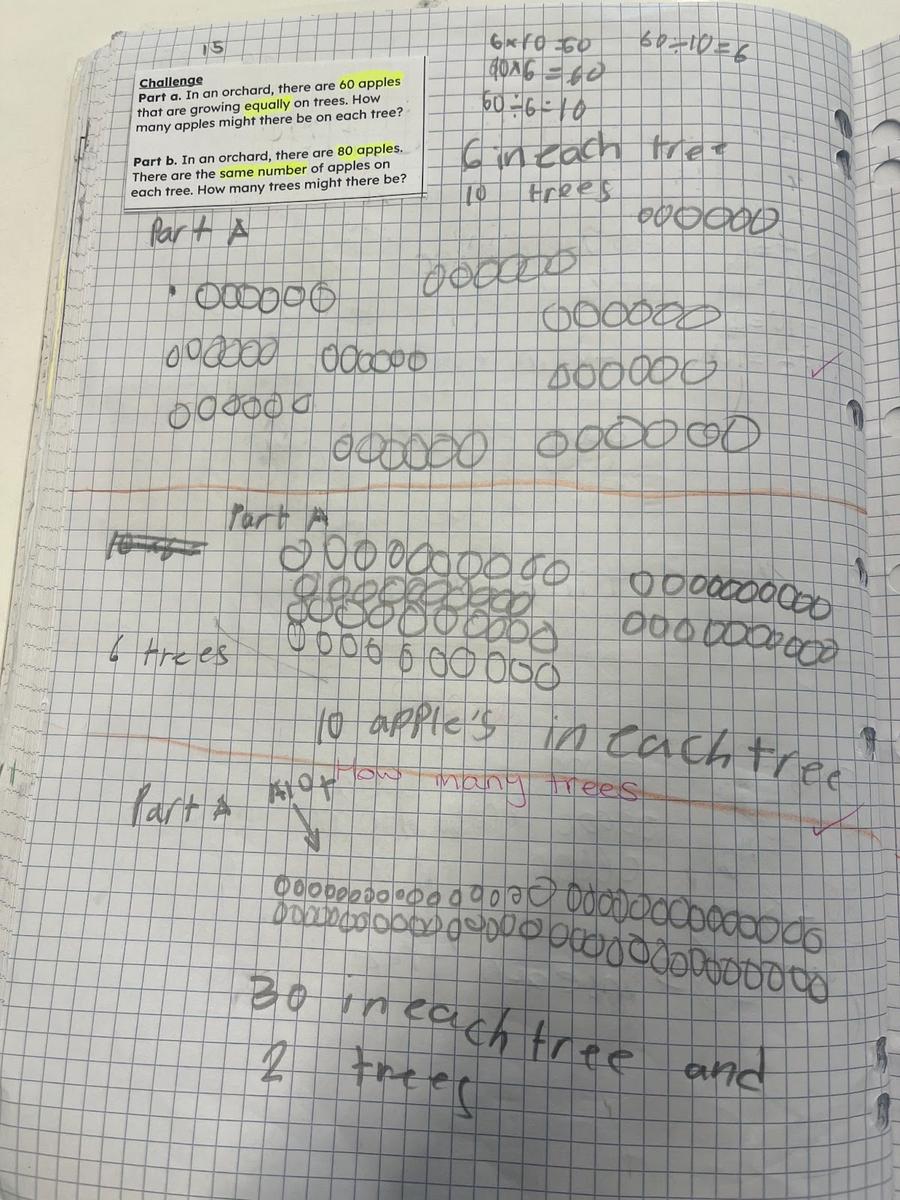 15
6×10=60 60÷10=6
10×6=60
60÷6=10
Challenge
Part a. In an orchard, there are 60 apples
that are growing equally on trees. How
many apples might there be on each tree?
Part b. In an orchard, there are 80 apples.
There are the same number of apples on
each tree. How many trees might there be?
6 in each tree
10 trees
Part A
Part A
6 trees
10 apple's in each tree
How many trees
Part A
30 in each tree and
2 trees